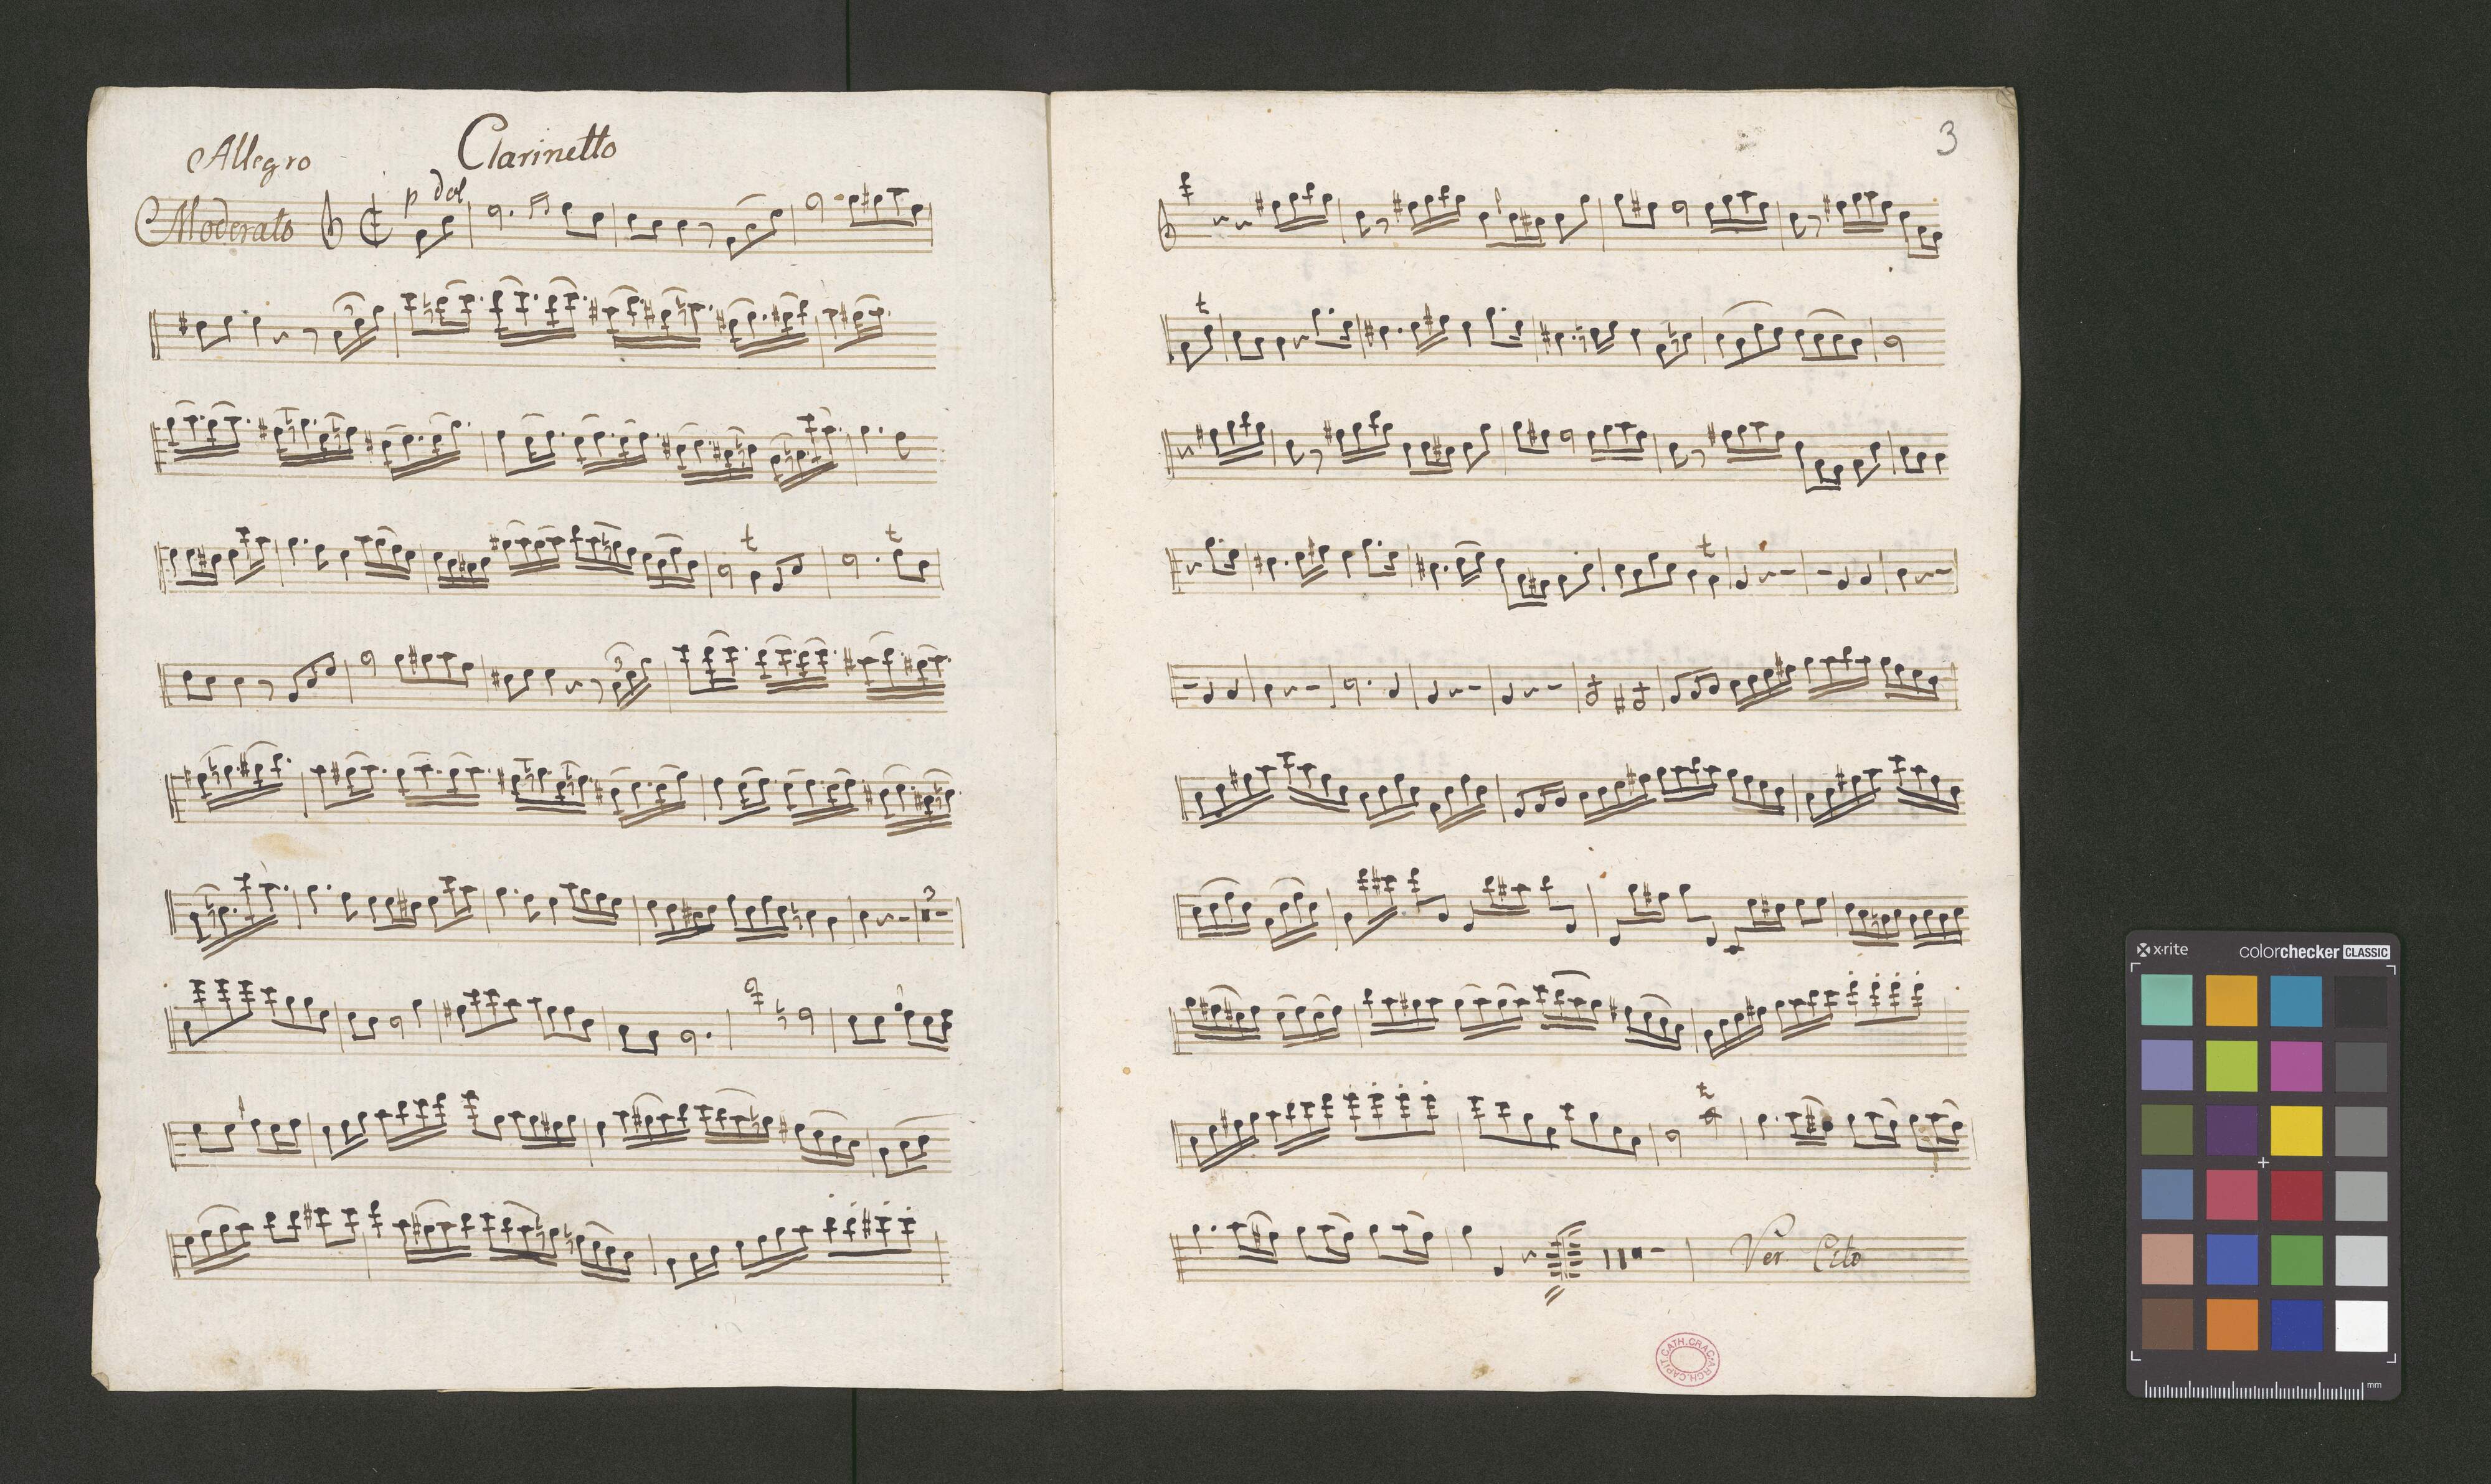 Clarinetto
Allegro
Moderato
p dol
3
t
t
3
3
3
t
t
t
t
Ver Cito
ARCH.CAPIT.CATH.CRAC.
x·rite
colorchecker CLASSIC
mm